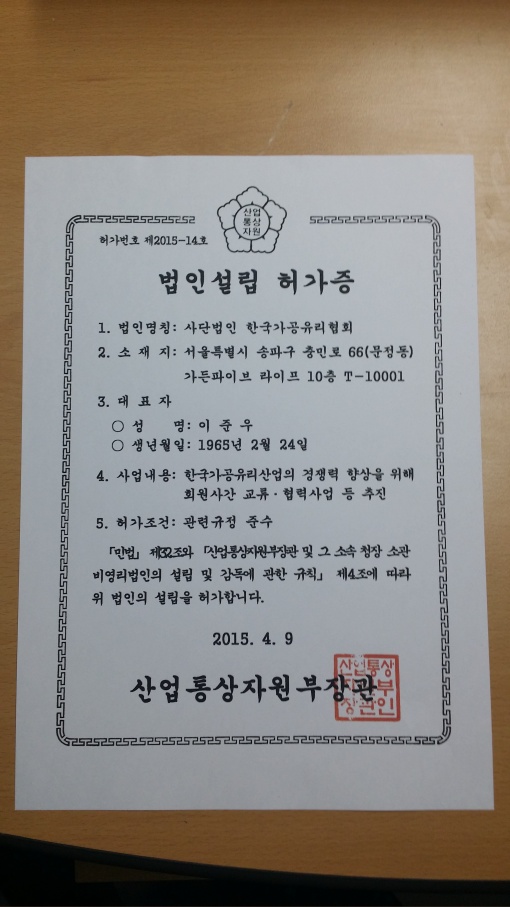 산업
통상
자원
허가번호 제2015-14호
법인설립 허가증
1. 법인명칭: 사단법인 한국가공유리협회
2. 소 재 지: 서울특별시 송파구 충민로 66(문정동)
가든파이브 라이프 10층 T-10001
3. 대 표 자
○ 성 명: 이 준 우
○ 생년월일: 1965년 2월 24일
4. 사업내용: 한국가공유리산업의 경쟁력 향상을 위해
회원사간 교류·협력사업 등 추진
5. 허가조건: 관련규정 준수
「민법」 제32조와 「산업통상자원부장관 및 그 소속 청장 소관
비영리법인의 설립 및 감독에 관한 규칙」 제4조에 따라
위 법인의 설립을 허가합니다.
2015. 4. 9
산업통상자원부장관
산업통상
부
장관인